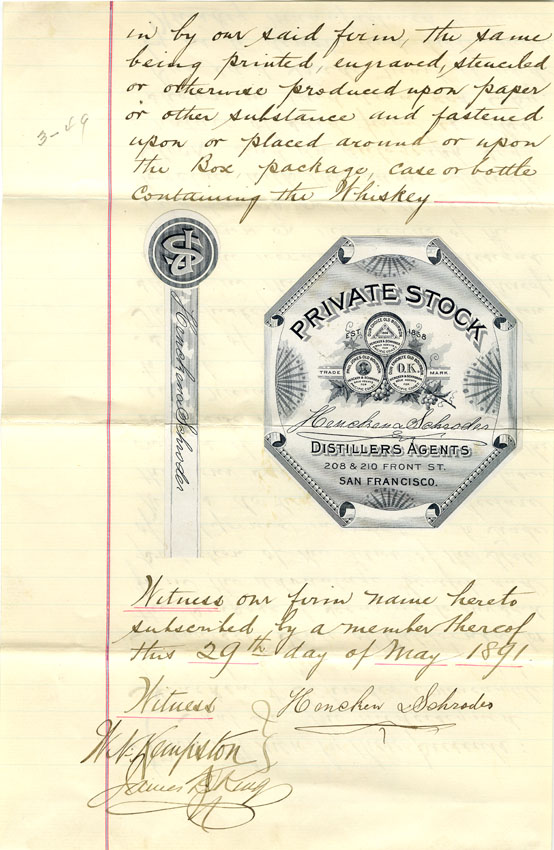 in by our said firm, the same
being printed, engraved, stenciled
or otherwise produced upon paper
or other substance and fastened
upon or placed around or upon
the Box, package, case or bottle
containing the Whiskey
3-49
Henchen & Schroder
PRIVATE STOCK
EST. 1868
TRADE MARK
O.K.
Henchen & Schroder
DISTILLERS AGENTS
208 & 210 FRONT ST.
SAN FRANCISCO.
Witness our firm name hereto
subscribed by a member thereof
this 29th day of May 1891.
Witness
Henchen & Schroder
W. N. Kempston
James B. King